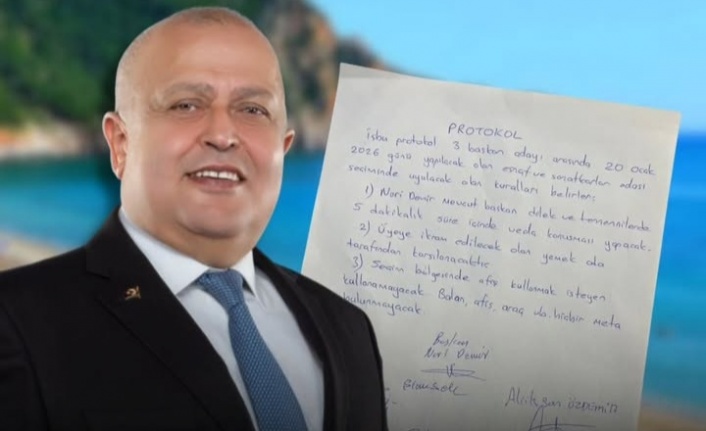 PROTOKOL
İşbu protokol 3 başkan adayı arasında 20 Ocak
2026 günü yapılacak olan esnaf ve sanatkarlar odası
seçiminde uyulacak olan kuralları belirler.
1) Nuri Demir Mevcut başkan dilek ve temennilerde
5 dakikalık süre içinde veda konuşması yapacak.
2) Üyeye ikram edilecek olan yemek oda
tarafından karşılanacaktır.
3) Seçim bölgesinde afiş kullanmak isteyen
kullanamayacak. Balon, afiş, araç vb. hiçbir meta
bulunmayacak
Başkan
Nuri Demir